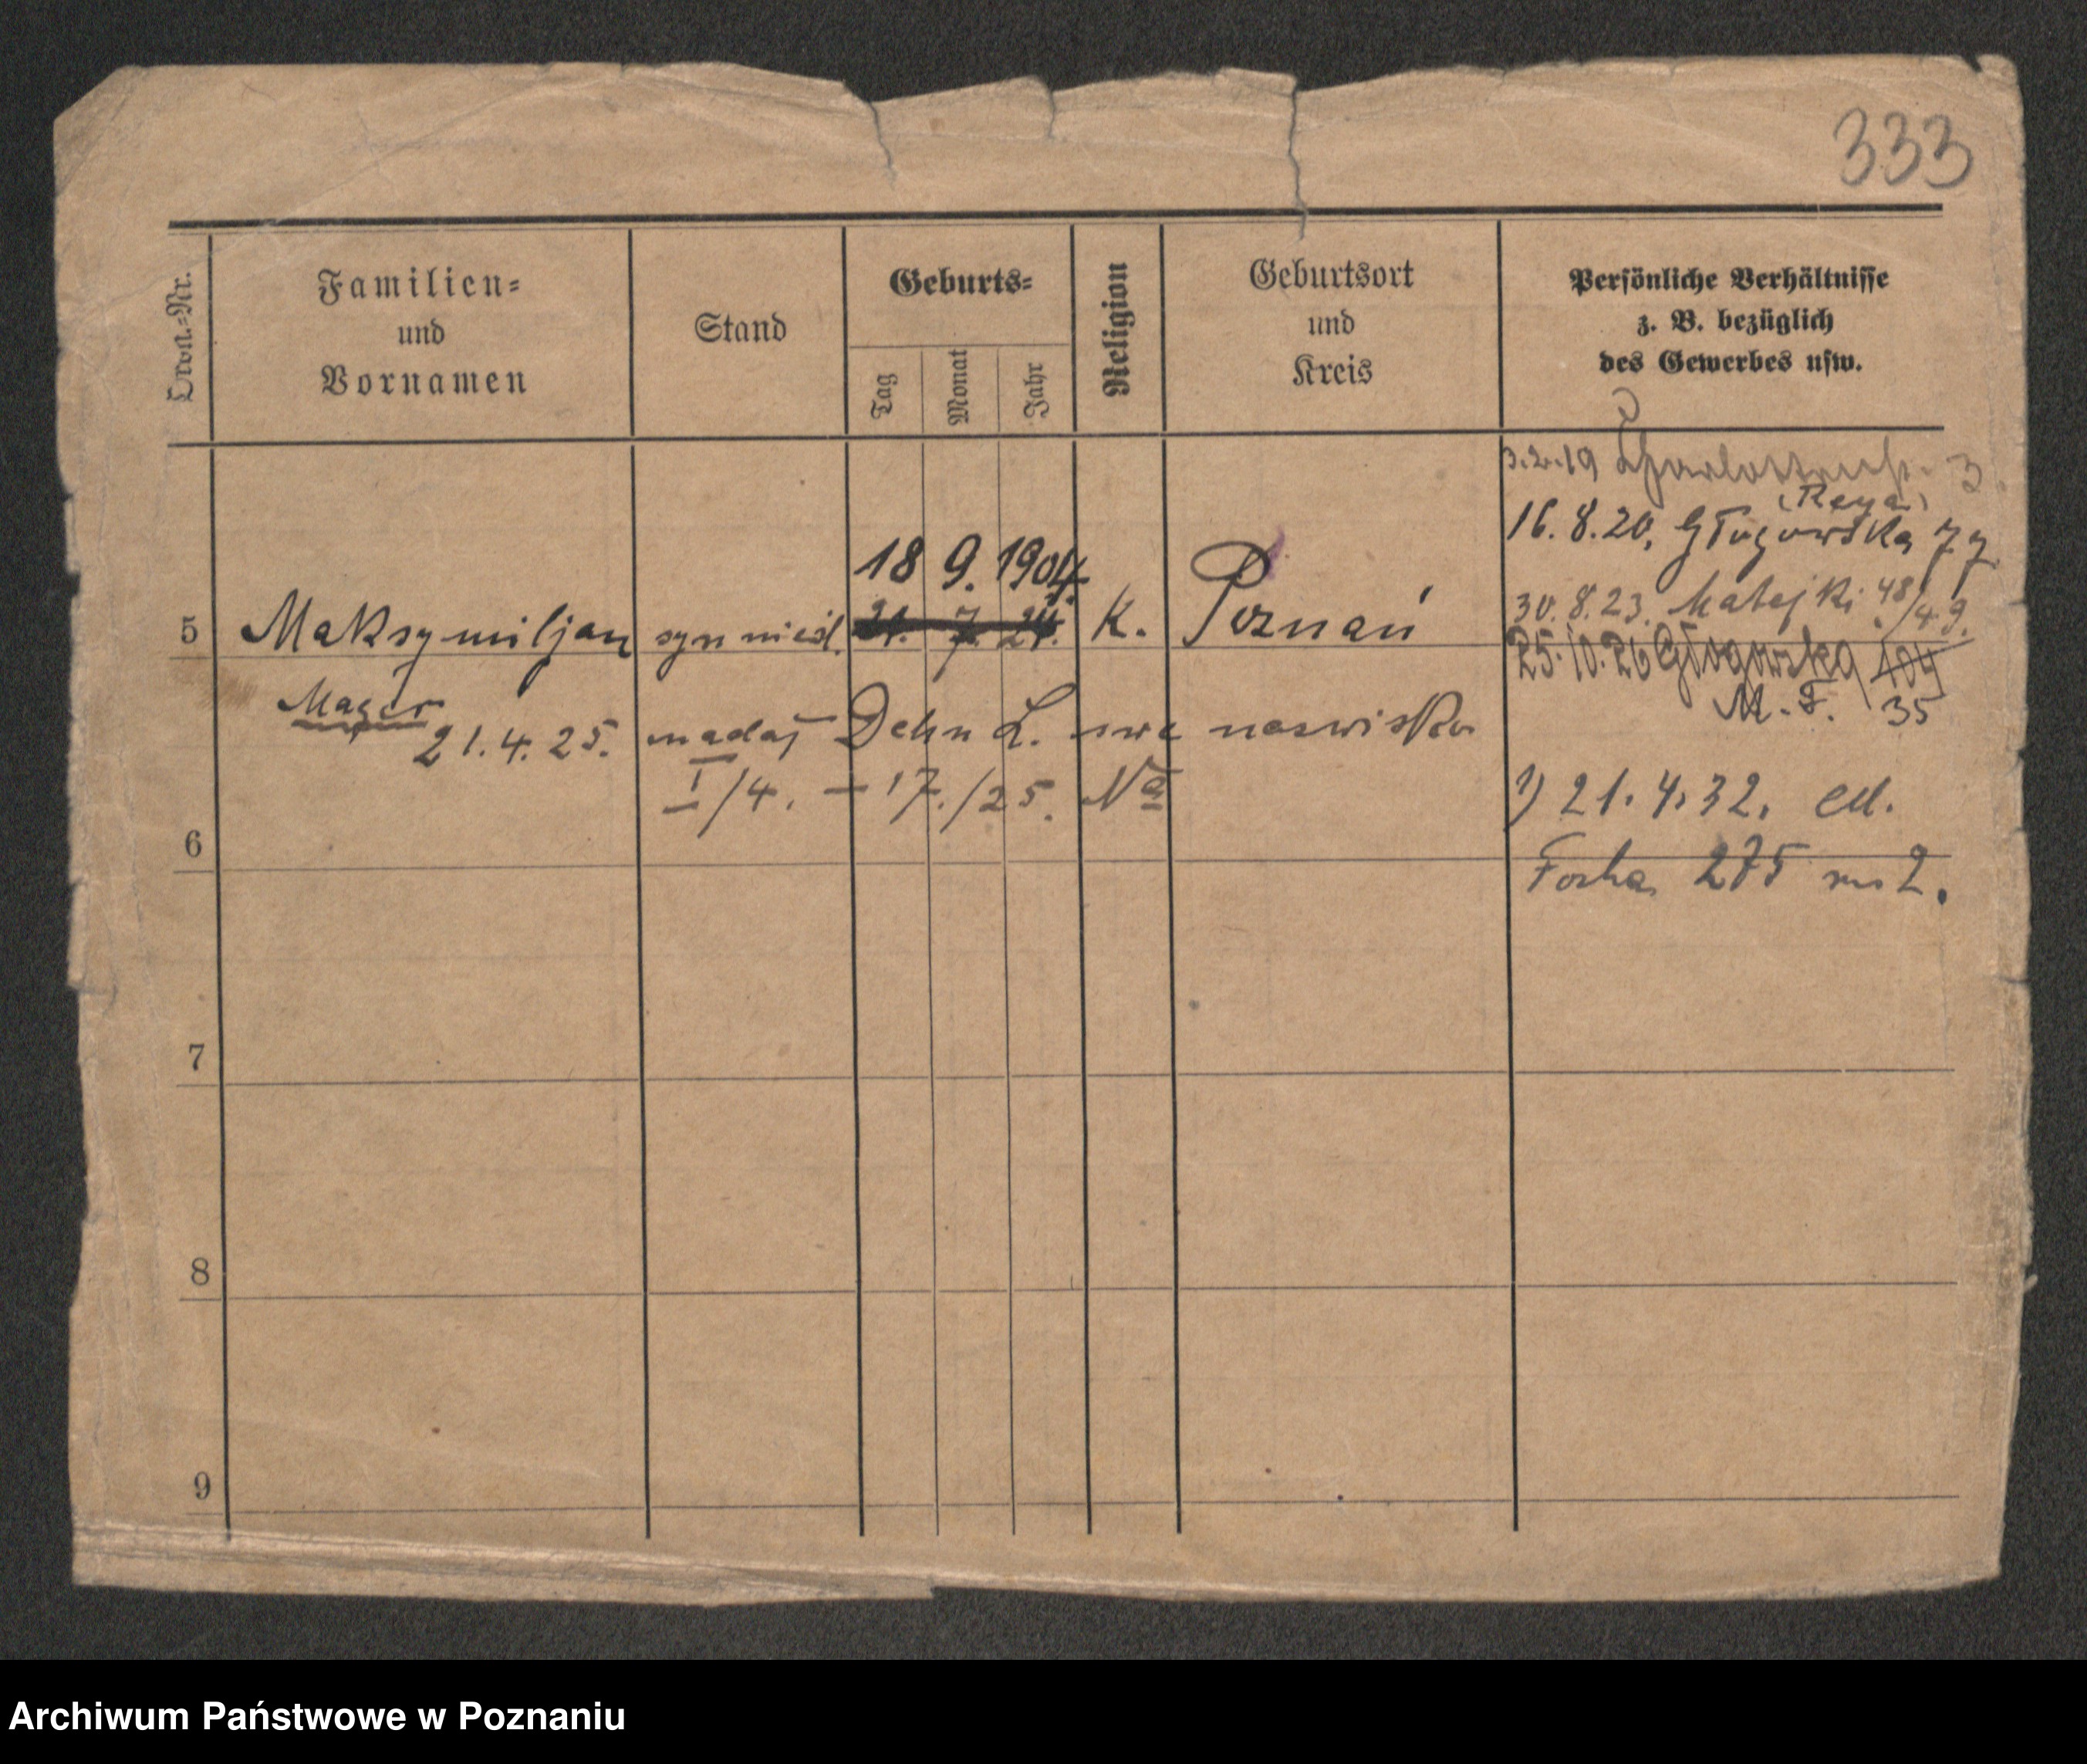 333
Familien=
und
Vornamen
Stand
Geburts=
Tag
Monat
Jahr
Religion
Geburtsort
und
Kreis
Persönliche Verhältnisse
z. B. bezüglich
des Gewerbes usw.
3.2.19 3
(Reya)
16.8.20. Głogowska
18 9. 1904.
30.8.23. Matejki 48/49.
5 Maksymiljan syn nieśl. 21. 7. 24. K. Poznań
25.10.26 Głogowska 104
Mager
M. F. 35
21.4.25. nadał Dehn L. swe nazwisko
I/4. – 17./25. Na
1) 21.4.32.
6
Focha 275 m 2.
7
8
9
Archiwum Państwowe w Poznaniu